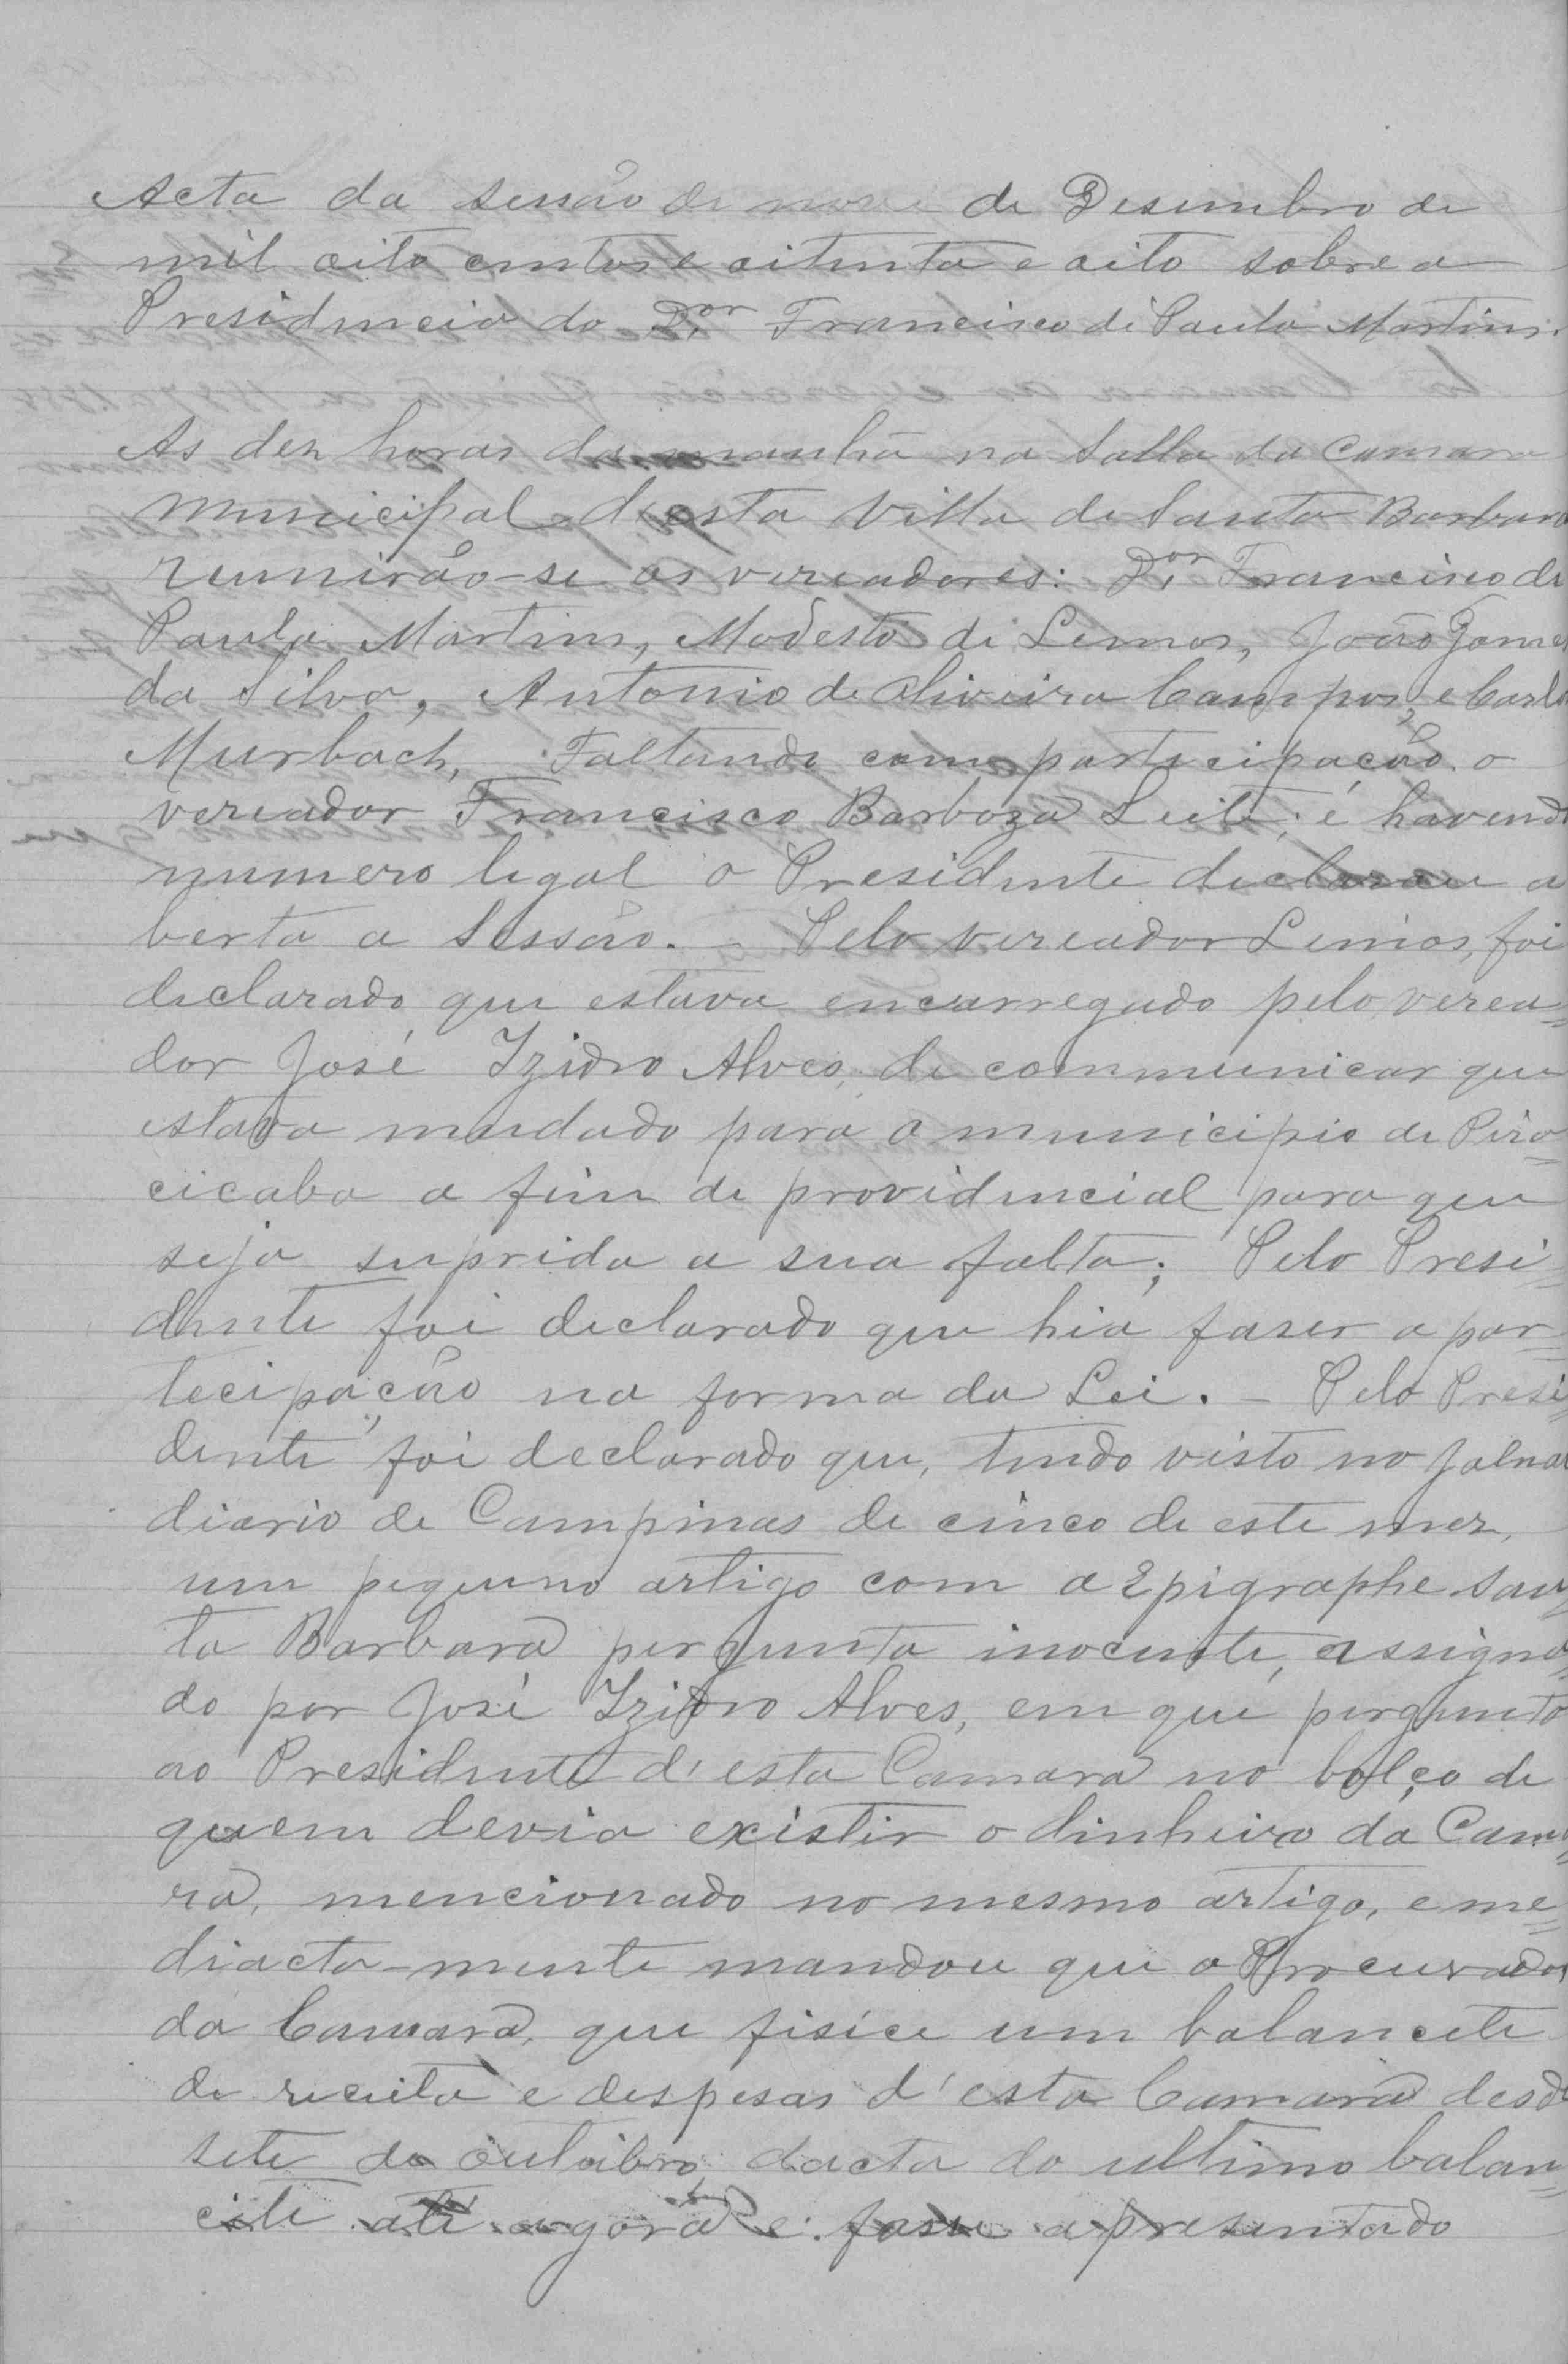 Acta da sessão de nove de Desembro de
mil oito centos e oitenta e oito sobre a
Presidencia do Dor Francisco de Paula Martins.
As dez horas da manhã na Salla da Camara
Municipal d'esta Villa de Santa Barbara
reunirão-se os vereadores: Dor Francisco de
Paula Martins, Modesto de Lemos, João Gomes
da Silva, Antonio de Oliveira Campos, e Carlos
Murbach, Faltando com participação o
vereador Francisco Barboza Leite; é havendo
numero legal o Presidente declarou a
berta a Sessão. - Pelo vereador Lemos, foi
declarado que estava encarregado pelo verea=
dor José Izidro Alves, de communicar que
estava mudado para o municipio de Pira=
cicaba a fim de providencial para que
seja suprida a sua falta; Pelo Presi=
dente foi declarado que hia faser a par=
tecipação na forma da Lei. - Pelo Presi=
dente foi declarado que, tendo visto no Jolnal
diario de Campinas de cinco de este mez,
um pequeno artigo com a Epigraphe San=
ta Barbara pergunta inocente, assigna=
do por José Izidro Alves, em que pergunta
ao Presidente d'esta Camara no bolço de
quem devia existir o dinheiro da Cama=
ra, mencionado no mesmo artigo, eme=
diacta-mente mandou que o Procurador
da Camara, que fisice um balancete
de receita e despesas d'esta Camara desde
sete de outubro, dacta do ultimo balan=
cete até agora e fosse apresentado